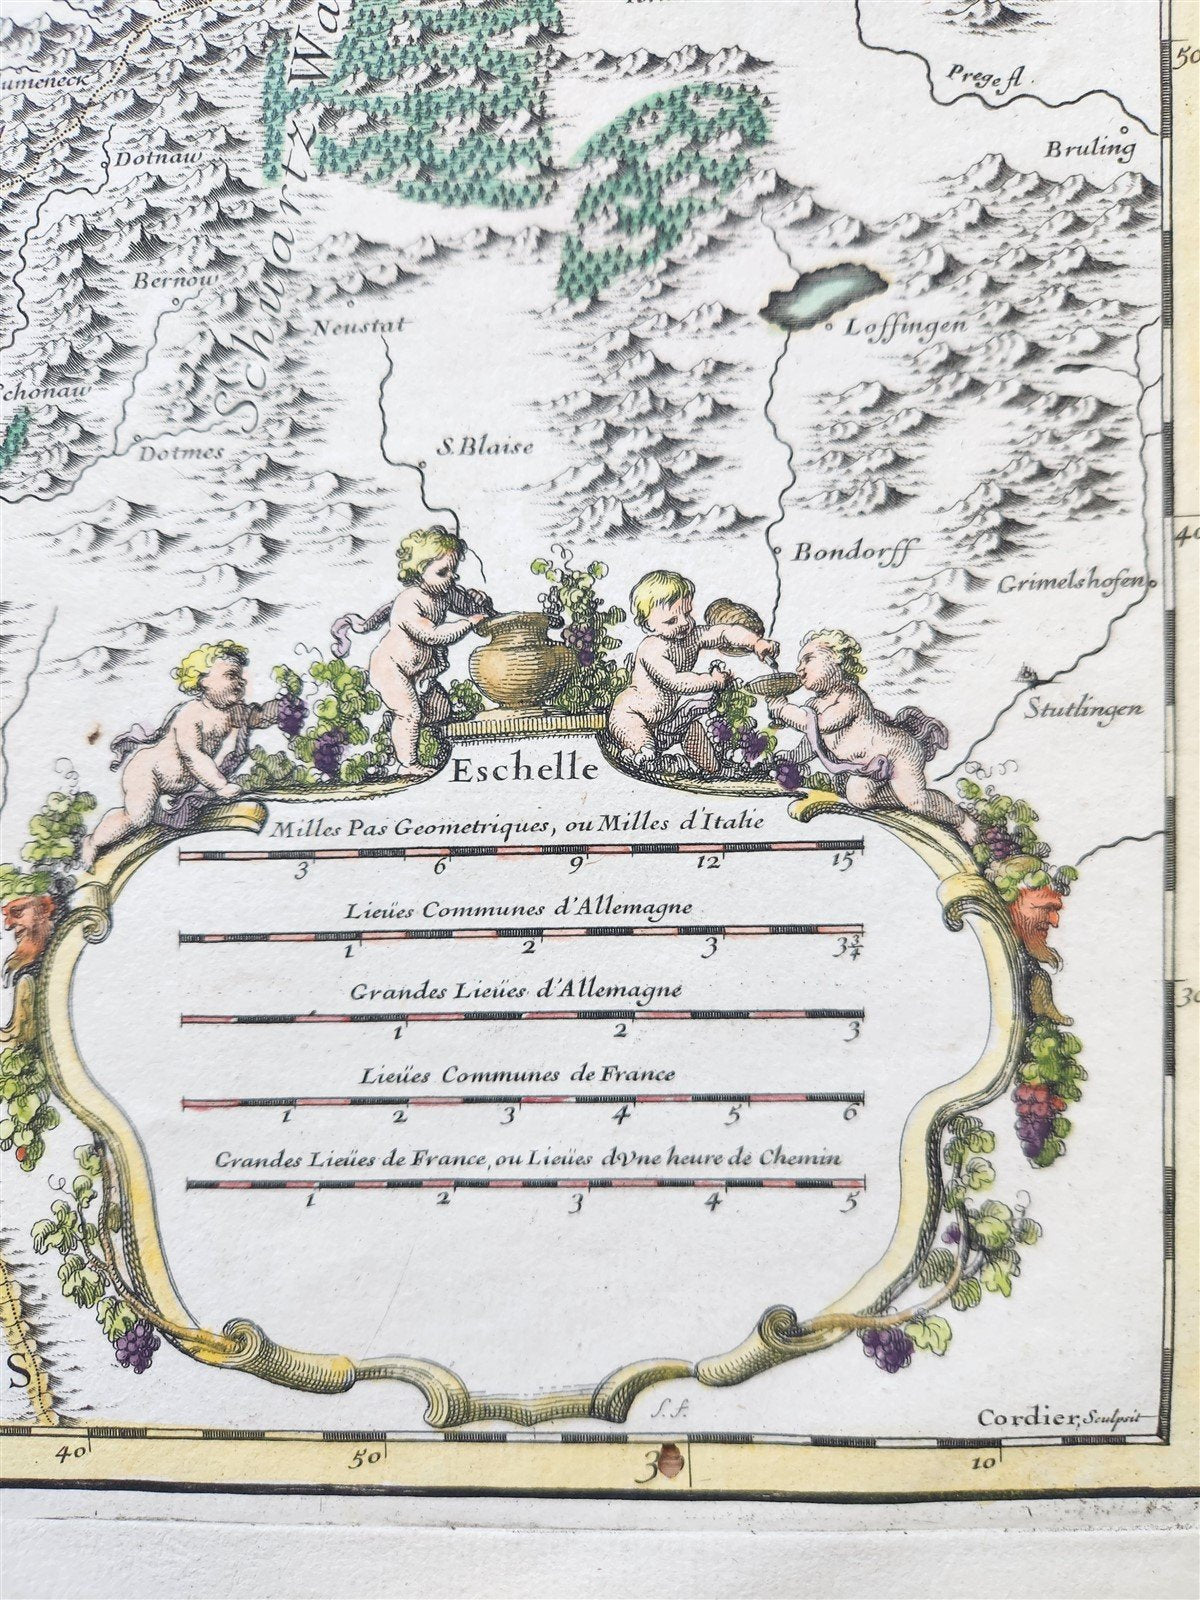 50
Prege fl.
Bruling
Dotnaw
Schwartz Wa
Bernow
Neustat
Loffingen
chonaw
Dotmes
S. Blaise
40
Bondorff
Grimelshofen
Stutlingen
Eschelle
Milles Pas Geometriques, ou Milles d'Italie
3 6 9 12 15
Lieües Communes d'Allemagne
1 2 3 3 3/4
Grandes Lieües d'Allemagne
30
1 2 3
Lieües Communes de France
1 2 3 4 5 6
Grandes Lieües de France, ou Lieües dVne heure de Chemin
1 2 3 4 5
S
Cordier, Sculpsit
40 50 3 10